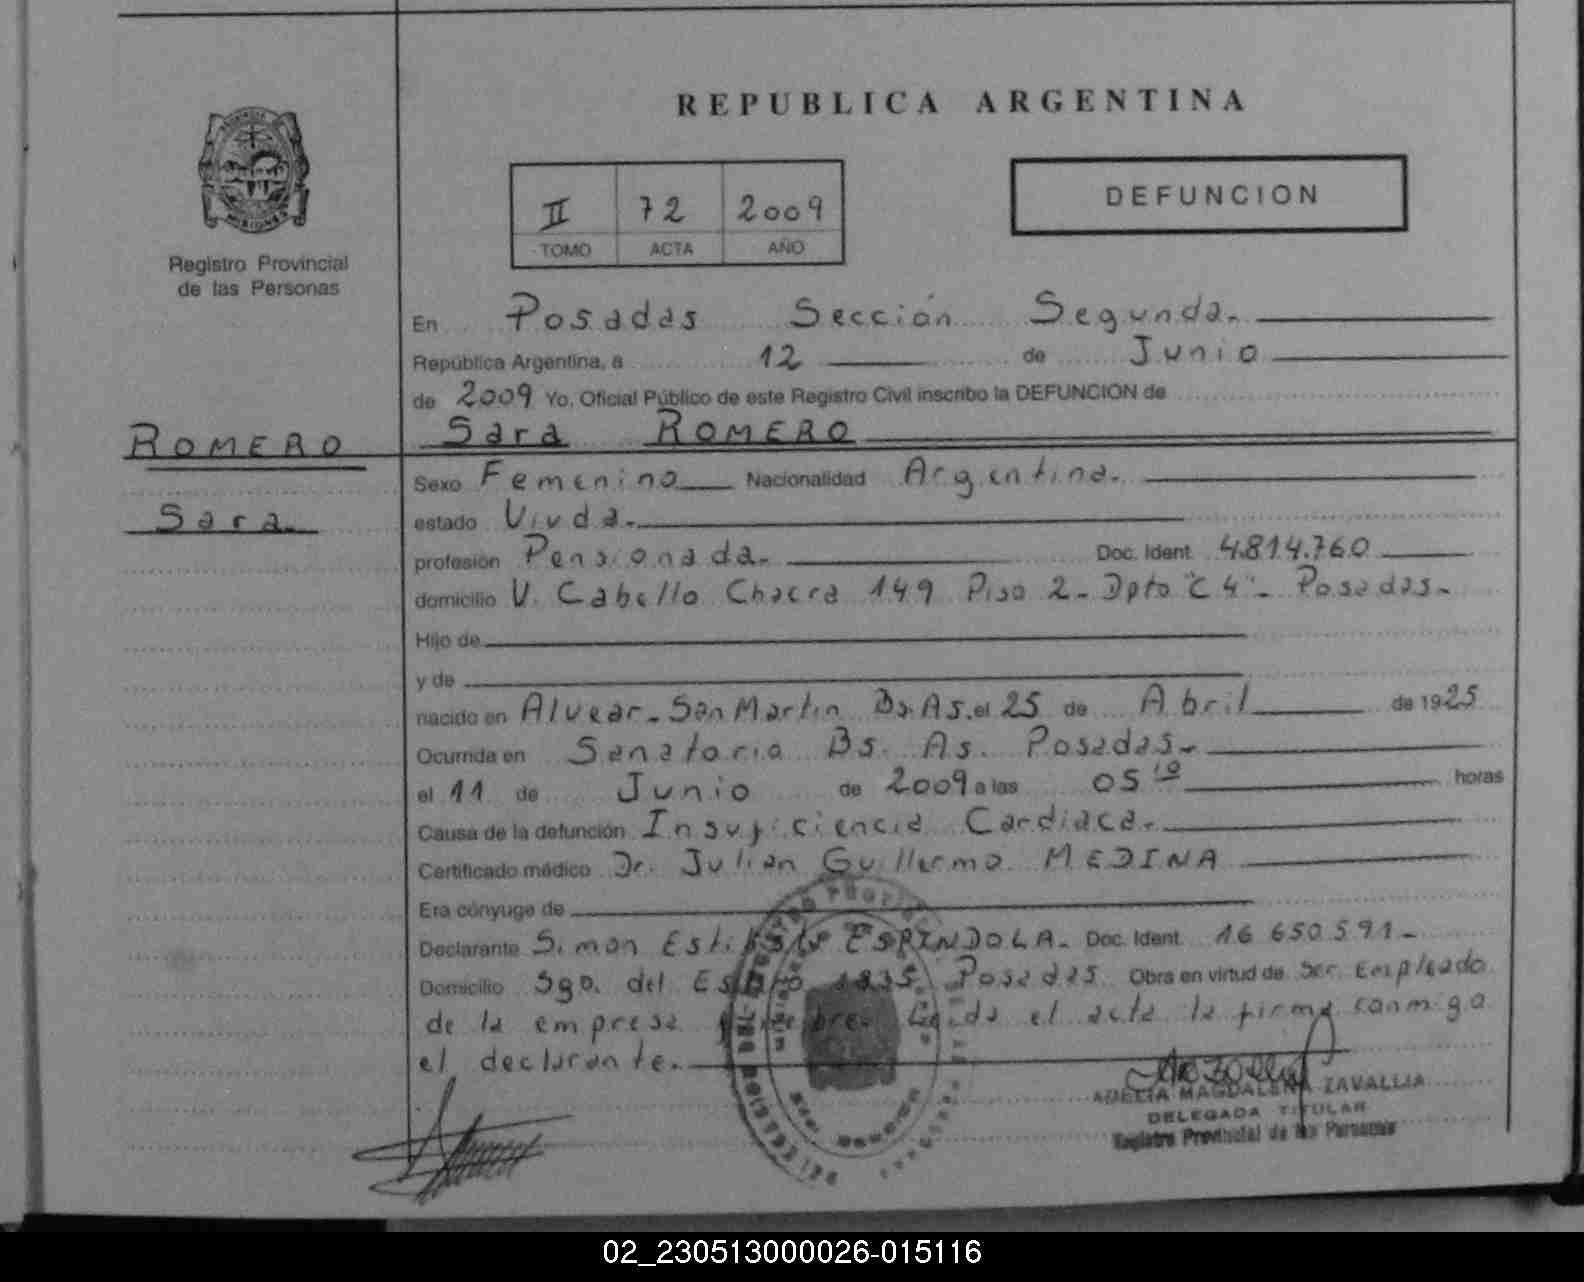 REPUBLICA ARGENTINA
II 72 2009
TOMO ACTA AÑO
DEFUNCION
MISIONES
Registro Provincial
de las Personas
En Posadas Sección Segunda.
República Argentina, a 12 de Junio
de 2009 Yo, Oficial Público de este Registro Civil inscribo la DEFUNCION de
ROMERO
Sara
Sara ROMERO
Sexo Femenino Nacionalidad Argentina.
estado Viuda.
profesión Pensionada. Doc. Ident. 4.814.760
domicilio V. Cabello Chacra 149 Piso 2- Dpto "C4"- Posadas.
Hijo de
y de
nacido en Alvear-San Martin Bs.As. el 25 de Abril de 1925
Ocurrida en Sanatorio Bs. As. Posadas.
el 11 de Junio de 2009 a las 05 10 horas
Causa de la defunción Insuficiencia Cardiaca.
Certificado médico Dr. Julian Guillermo MEDINA
Era cónyuge de
Declarante Simon ESPINDOLA. Doc. Ident. 16 650.591-
Domicilio Sgo. del Estero 1835 Posadas Obra en virtud de Ser Empleado
de la empresa Leida el acta la firma conmigo
el declarante.
ADELIA MAGDALENA ZAVALLIA
DELEGADA TITULAR
Registro Provincial de las Personas
02_230513000026-015116